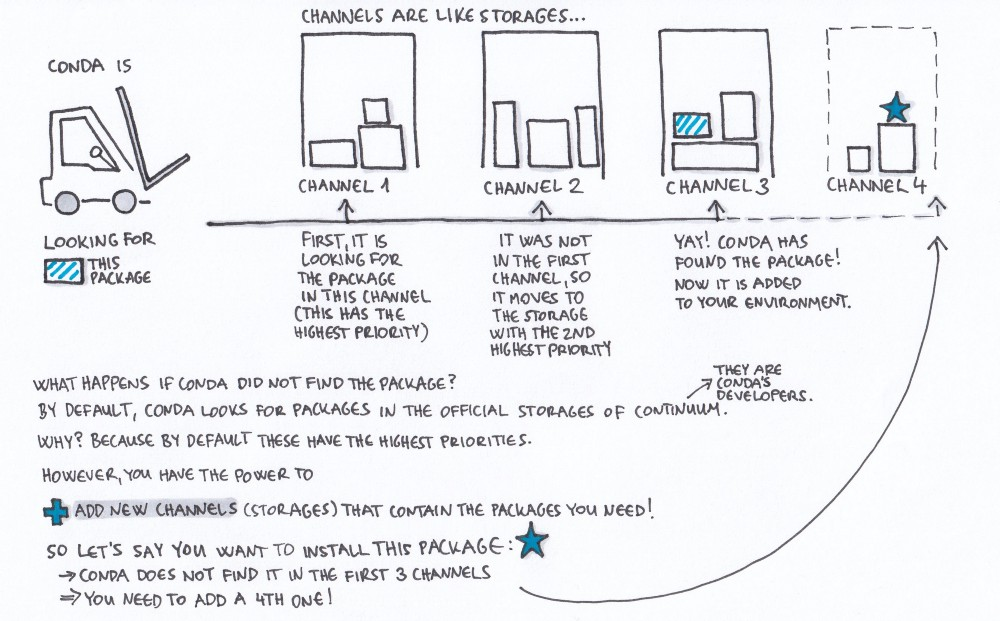 CHANNELS ARE LIKE STORAGES...
CONDA IS
LOOKING FOR
THIS
PACKAGE
CHANNEL 1
CHANNEL 2
CHANNEL 3
CHANNEL 4
FIRST, IT IS
LOOKING FOR
THE PACKAGE
IN THIS CHANNEL
(THIS HAS THE
HIGHEST PRIORITY)
IT WAS NOT
IN THE FIRST
CHANNEL, SO
IT MOVES TO
THE STORAGE
WITH THE 2ND
HIGHEST PRIORITY
YAY! CONDA HAS
FOUND THE PACKAGE!
NOW IT IS ADDED
TO YOUR ENVIRONMENT.
WHAT HAPPENS IF CONDA DID NOT FIND THE PACKAGE?
THEY ARE
CONDA'S
DEVELOPERS.
BY DEFAULT, CONDA LOOKS FOR PACKAGES IN THE OFFICIAL STORAGES OF CONTINUUM.
WHY? BECAUSE BY DEFAULT THESE HAVE THE HIGHEST PRIORITIES.
HOWEVER, YOU HAVE THE POWER TO
ADD NEW CHANNELS (STORAGES) THAT CONTAIN THE PACKAGES YOU NEED!
SO LET'S SAY YOU WANT TO INSTALL THIS PACKAGE:
→ CONDA DOES NOT FIND IT IN THE FIRST 3 CHANNELS
⇒ YOU NEED TO ADD A 4TH ONE!